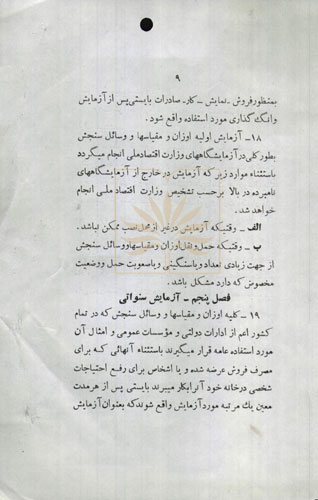 ۹
بمنظور فروش ـ نمایش ـ کار ـ صادرات بایستی پس از آزمایش
وانگ گذاری مورد استفاده واقع شود .
۱۸ـ آزمایش اولیه اوزان و مقیاسها و وسائل سنجش
بطور کلی در آزمایشگاههای وزارت اقتصاد ملی انجام میگردد
باستثناء موارد زیر که آزمایش در خارج از آزمایشگاههای
نامبرده در بالا برحسب تشخیص وزارت اقتصاد ملی انجام
خواهد شد .
الف ـ وقتیکه آزمایش در غیر از محل نصب ممکن نباشد .
ب ـ وقتیکه حمل و نقل اوزان و مقیاسها و وسائل سنجش
از جهت زیادی تعداد و یا سنگینی و یا صعوبت حمل و وضعیت
مخصوص که دارد مشکل باشد .
فصل پنجم ـ آزمایش سنواتی
۱۹ ـ کلیه اوزان و مقیاسها و وسائل سنجش که در تمام
کشور اعم از ادارات دولتی و مؤسسات عمومی و امثال آن
مورد استفاده عامه قرار میگیرند باستثناء آنهائی که برای
مصرف فروش عرضه شده و یا اشخاص برای رفع احتیاجات
شخصی در خانه خود آنرا بکار میبرند بایستی پس از هر مدت
معین یک مرتبه مورد آزمایش واقع شوند که بعنوان آزمایش